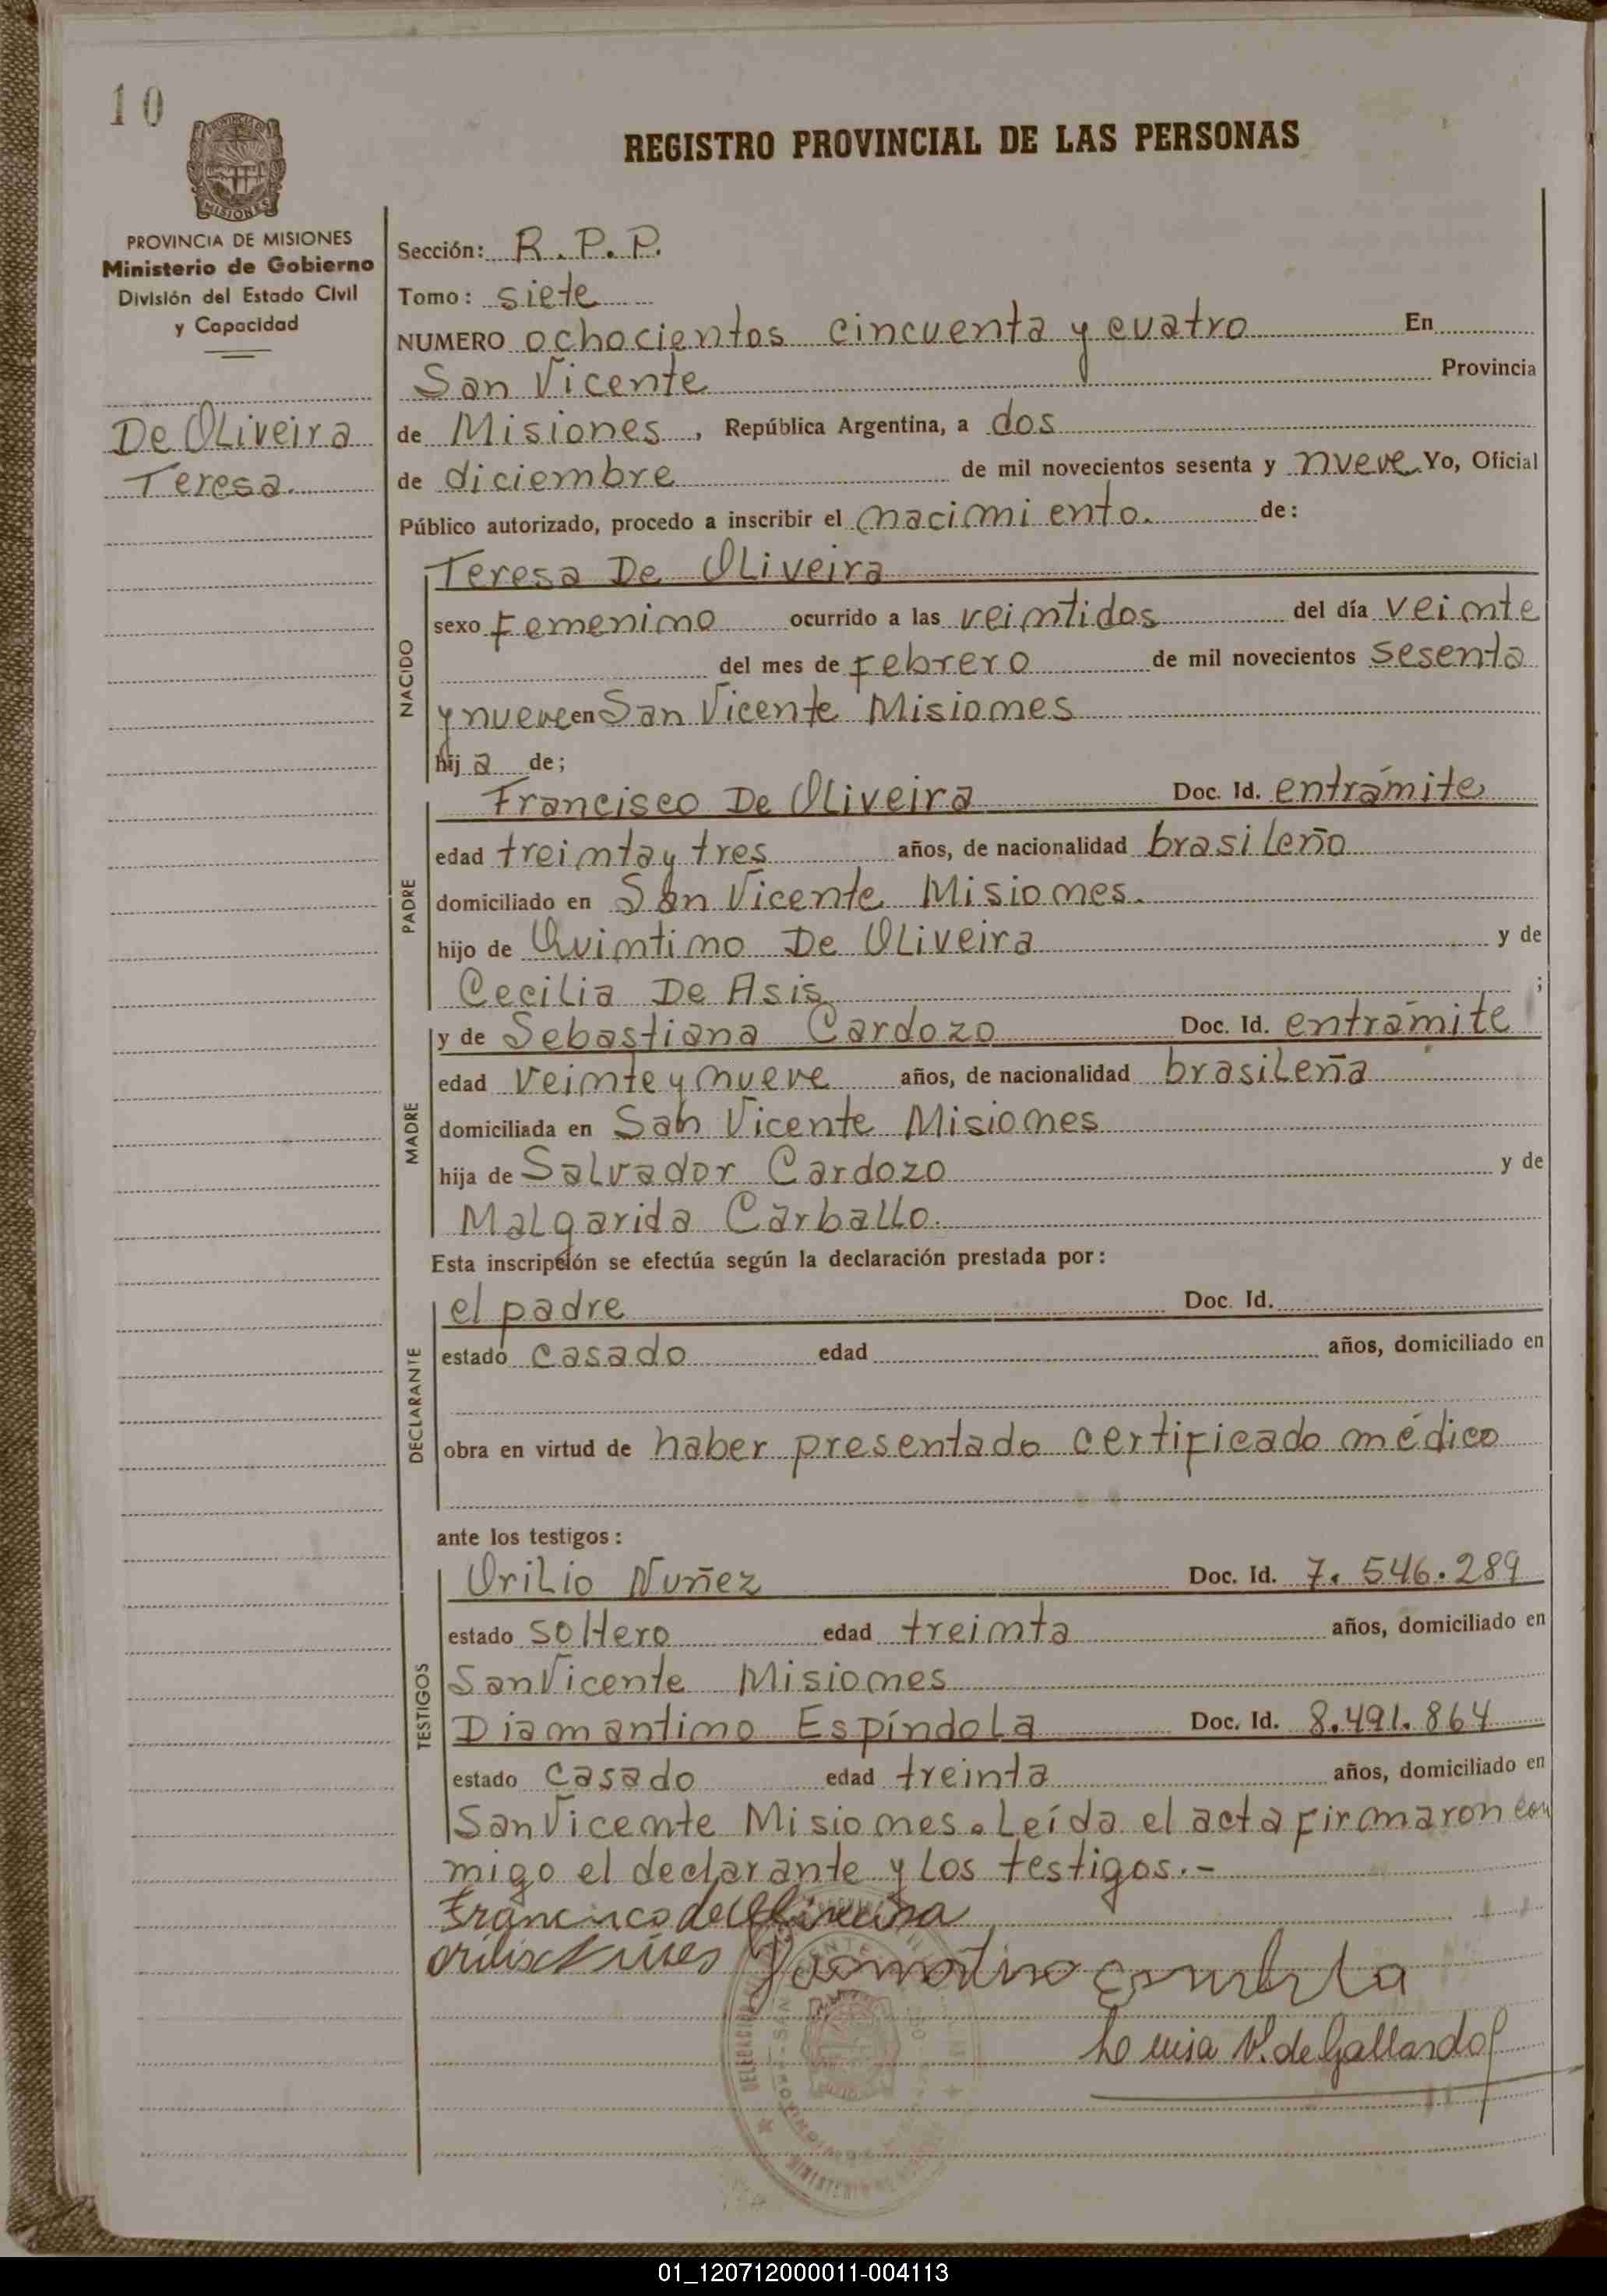 10
REGISTRO PROVINCIAL DE LAS PERSONAS
MISIONES
PROVINCIA DE MISIONES
Ministerio de Gobierno
División del Estado Civil
y Capacidad
De Oliveira
Teresa.
Sección: R.P.P.
Tomo: siete
NUMERO ochocientos cincuenta y cuatro En
San Vicente Provincia
de Misiones, República Argentina, a dos
de diciembre de mil novecientos sesenta y nueve Yo, Oficial
Público autorizado, procedo a inscribir el nacimiento. de:
NACIDO
Teresa De Oliveira
sexo Femenino ocurrido a las veintidos del día veinte
del mes de Febrero de mil novecientos sesenta
y nueve en San Vicente Misiones
hija de;
PADRE
Francisco De Oliveira Doc. Id. entrámite
edad treinta y tres años, de nacionalidad brasileño
domiciliado en San Vicente Misiones.
hijo de Quintino De Oliveira y de
Cecilia De Asis ;
MADRE
y de Sebastiana Cardozo Doc. Id. entrámite
edad veinte y nueve años, de nacionalidad brasileña
domiciliada en San Vicente Misiones
hija de Salvador Cardozo y de
Malgarida Carballo.
Esta inscripción se efectúa según la declaración prestada por:
DECLARANTE
el padre Doc. Id.
estado casado edad años, domiciliado en
obra en virtud de haber presentado certificado médico
ante los testigos:
TESTIGOS
Orilio Nuñez Doc. Id. 7.546.289
estado soltero edad treinta años, domiciliado en
San Vicente Misiones
Diamantino Espíndola Doc. Id. 8.491.864
estado casado edad treinta años, domiciliado en
San Vicente Misiones. Leída el acta firmaron con
migo el declarante y los testigos.-
Francisco de Oliveira
Luisa V. de Gallardo
01_120712000011-004113